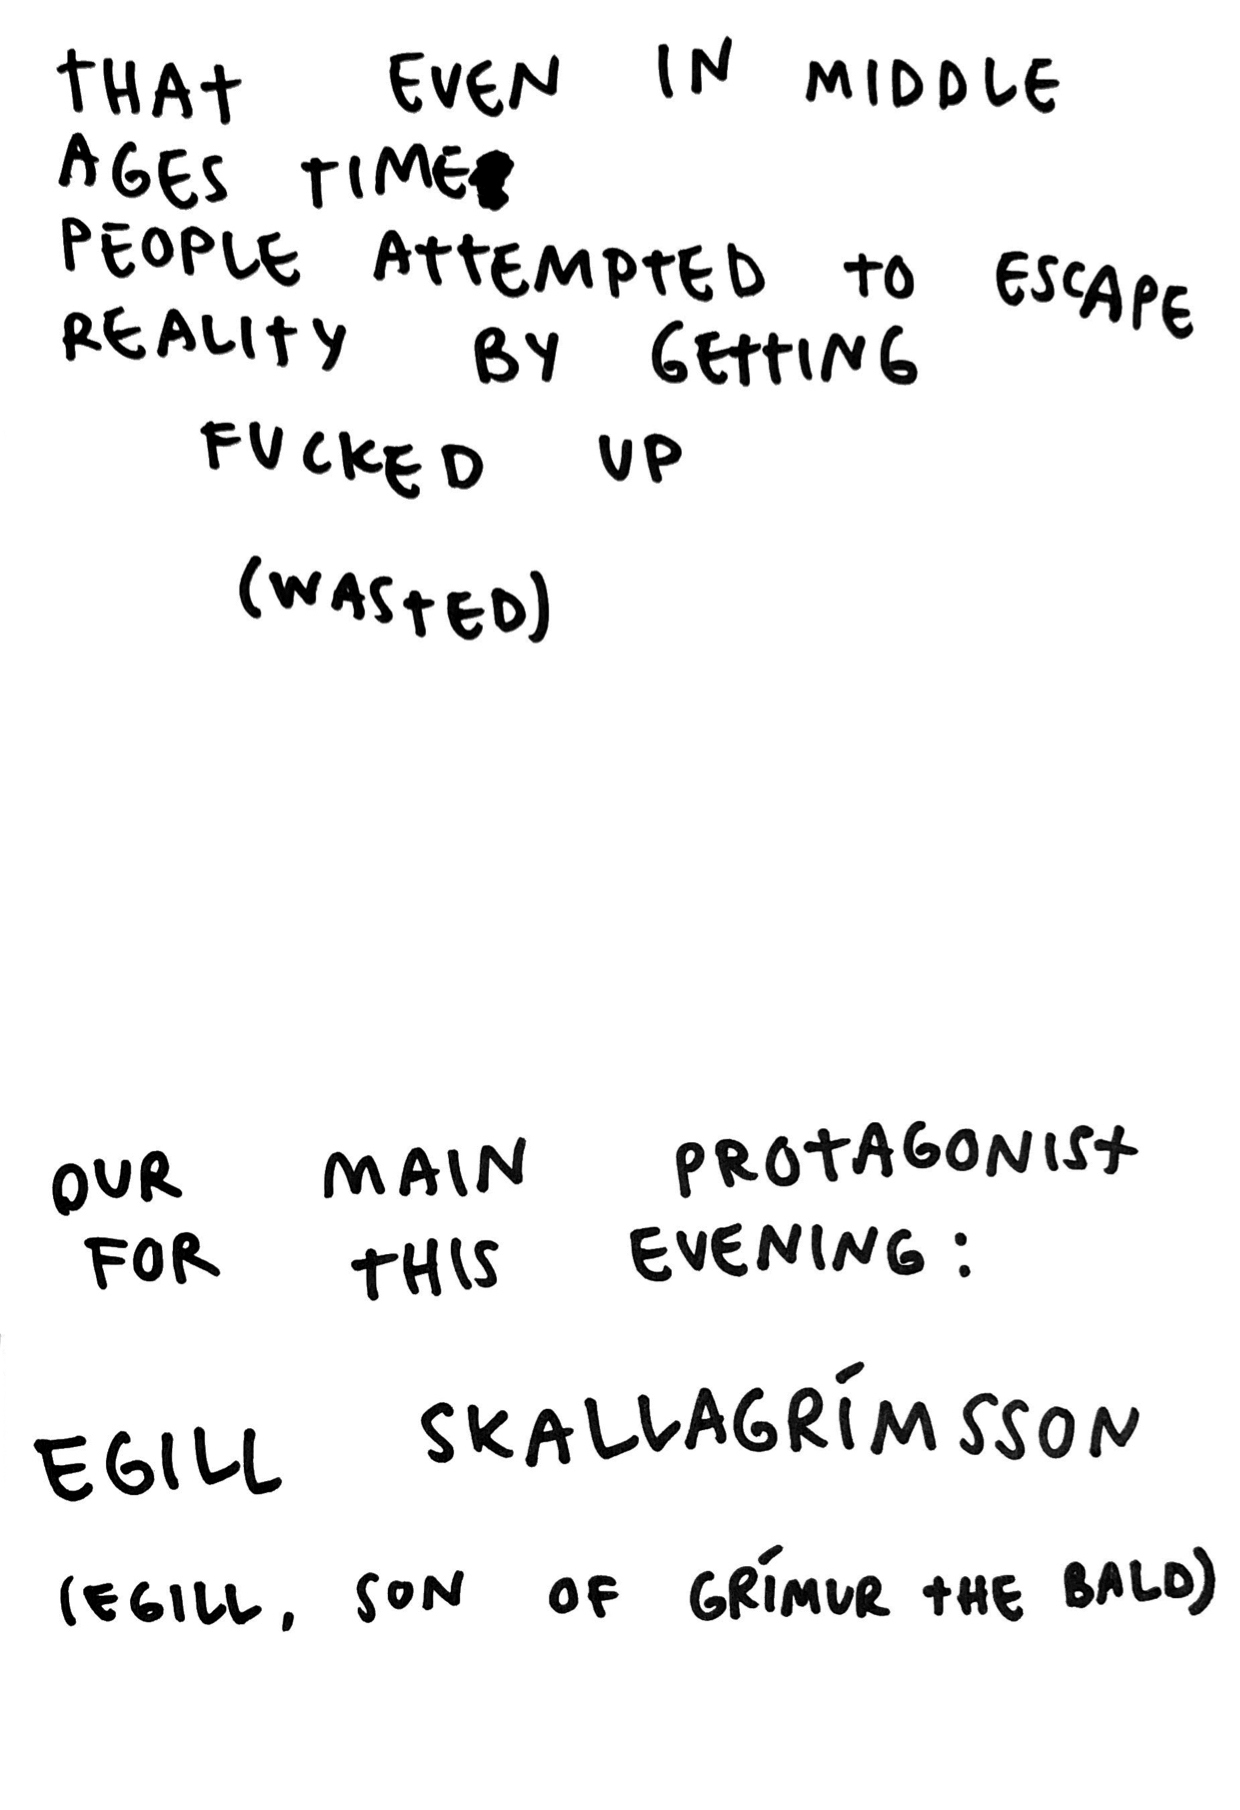 THAT EVEN IN MIDDLE
AGES TIME
PEOPLE ATTEMPTED TO ESCAPE
REALITY BY GETTING
FUCKED UP
(WASTED)
OUR MAIN PROTAGONIST
FOR THIS EVENING:
EGILL SKALLAGRÍMSSON
(EGILL, SON OF GRÍMUR THE BALD)